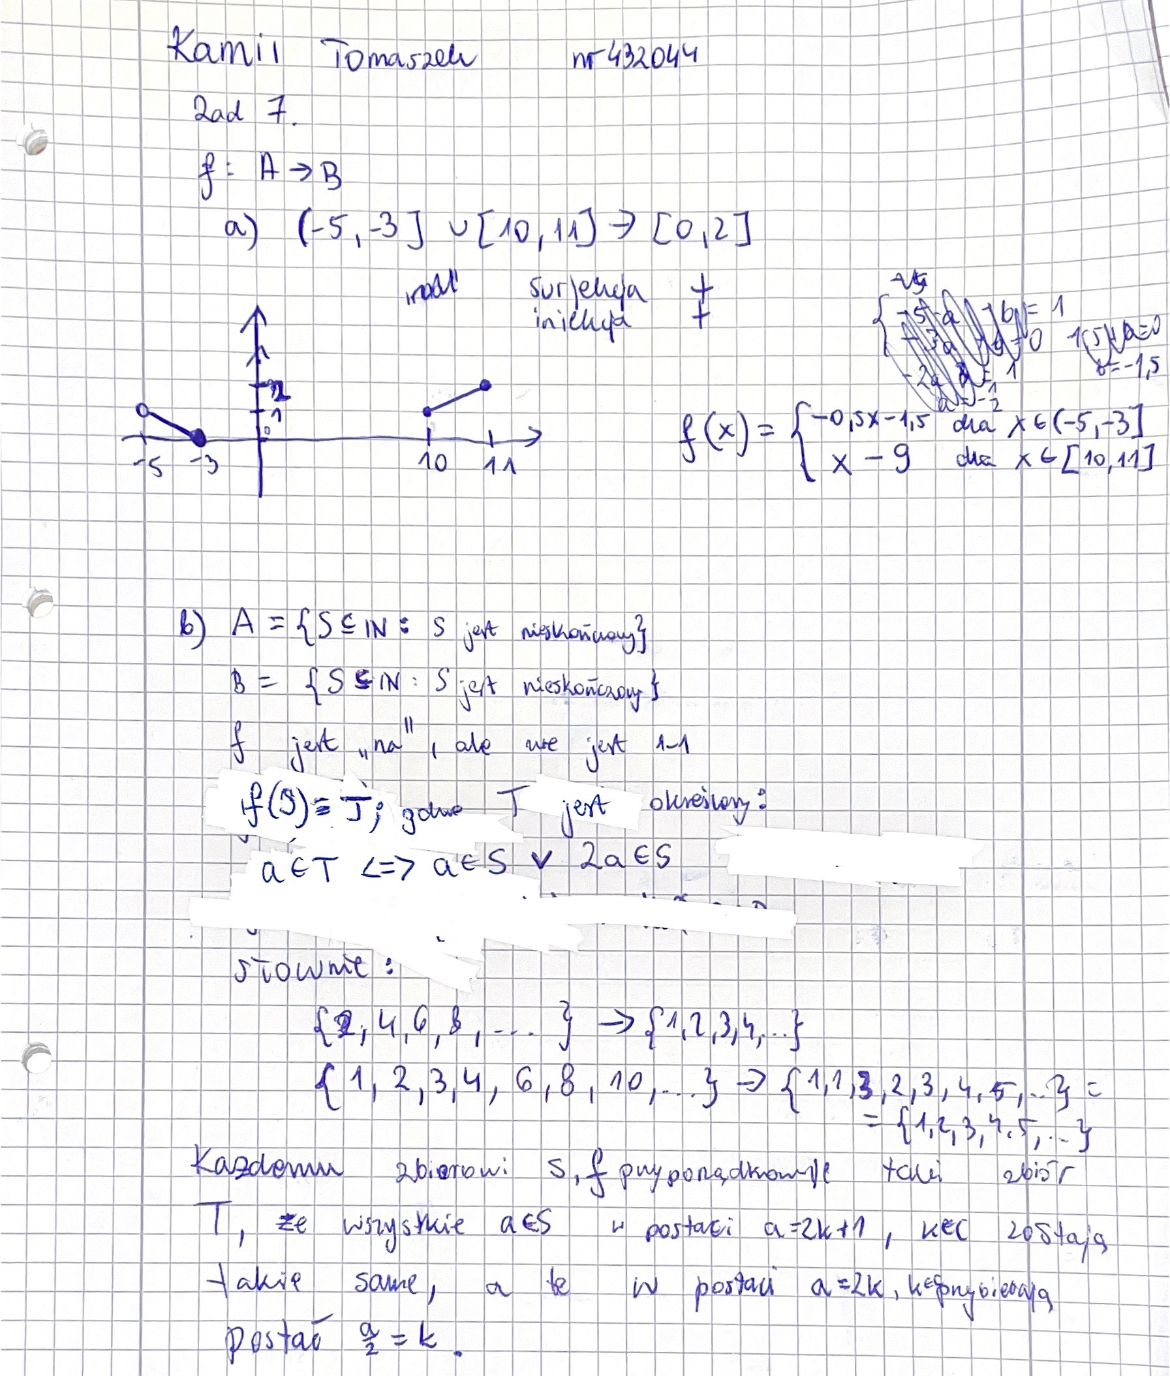 Kamil Tomaszek nr 432044
Zad 7.
f: A → B
a) (-5,-3] ∪ [10,11] → [0,2]
surjekcja +
iniekcja +
2
1
0
-5 -3 10 11
f(x) = { -0,5x-1,5 dla x∈(-5,-3]
x - 9 dla x∈[10,11]
b) A = {S⊆IN: S jest nieskończony}
B = {S⊆IN: S jest nieskończony}
f jest „na", ale nie jest 1-1
f(S) = T; gdzie T jest określony:
a∈T <=> a∈S ∨ 2a∈S
słownie:
{2,4,6,8,...} → {1,2,3,4,...}
{1,2,3,4,6,8,10,...} → {1,1,3,2,3,4,5,...} =
= {1,2,3,4,5,...}
Każdemu zbiorowi S, f przyporządkowuje taki zbiór
T, że wszystkie a∈S w postaci a=2k+1, k∈C zostają
takie same, a te w postaci a=2k, k∈C przybierają
postać a/2 = k.